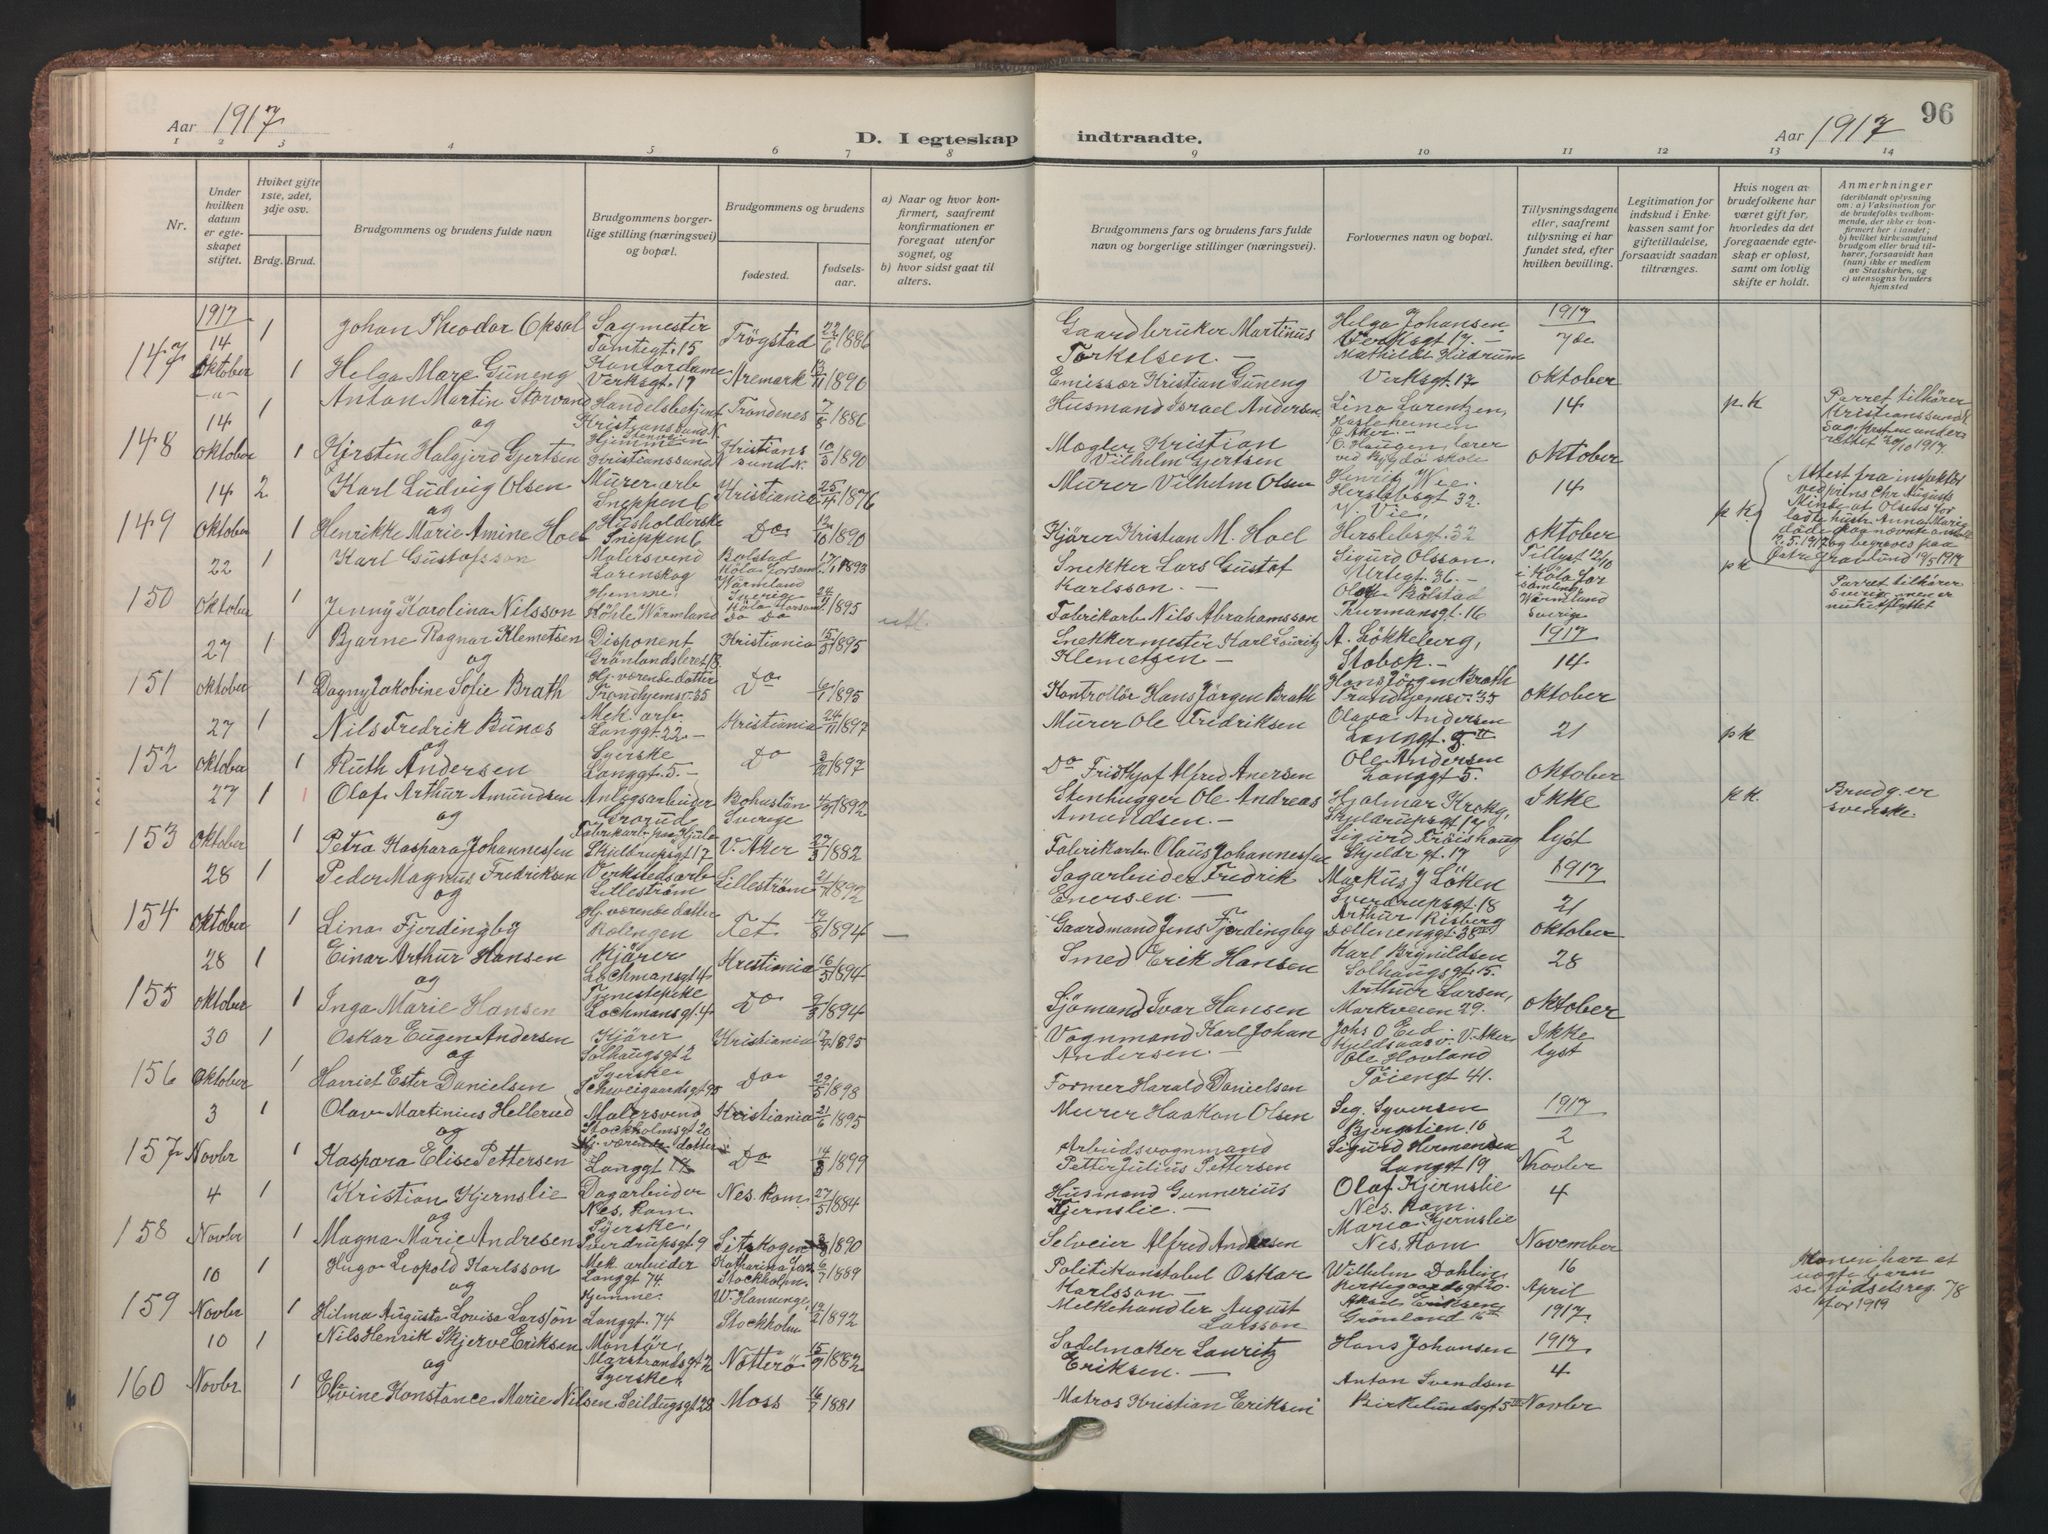 Aar 1917
D. I egteskap indtraadte.
Aar 1917
96
1 2 3 4 5 6 7 8 9 10 11 12 13 14
Nr.
Under hvilken datum er egteskapet stiftet.
Hvilket gifte 1ste, 2det, 3dje osv.
Brdg. Brud.
Brudgommens og brudens fulde navn
Brudgommens borgerlige stilling (næringsvei) og bopæl.
Brudgommens og brudens
fødested.
fødselsaar.
a) Naar og hvor konfirmert, saafremt konfirmationen er foregaat utenfor sognet, og
b) hvor sidst gaat til alters.
Brudgommens fars og brudens fars fulde navn og borgerlige stillinger (næringsvei).
Forlovernes navn og bopæl.
Tillysningsdagene eller, saafremt tillysning ei har fundet sted, efter hvilken bevilling.
Legitimation for indskud i Enkekassen samt for giftetilladelse, forsaavidt saadan tiltrænges.
Hvis nogen av brudefolkene har været gift før, hvorledes da det foregaaende egteskap er opløst, samt om lovlig skifte er holdt.
Anmerkninger (deriblandt oplysning om: a) Vaksination for de brudefolks vedkommende, der ikke er konfirmert her i landet; b) hvilket kirkesamfund brudgom eller brud tilhører, forsaavidt han (hun) ikke er medlem av Statskirken, og c) utensogns bruders hjemsted
1917 1917
147 14 Oktober 1 Johan Theodor Opsal Sagmester Tomtegt. 15 Trøgstad 22/6 1886 Gaardbruker Martinus Torkelsen. Helga Johansen Verksgt 17. 7de
1 Helga Marie Guneng Kontordame Verksgt. 17 Aremark 13/11 1896 Emissær Kristian Guneng Verksgt. 17 oktober
148 14 oktober 1 Anton Martin Storvand og Handelsbetjent Kristianssund N. Trondenes 7/8 1886 Husmand Israel Andersen. Lina Lorentzen, Hasleheimen Ø Aker. 14 pk Parret tilhører Kristianssund N
1 Kirsten Halgjerd Gjertsen Hjemme Kristianssund N Kristianssund N. 10/3 1890 Mægler Kristian Vilhelm Gjertsen O. Haugen lærer ved Bygdø skole oktober
149 14 oktober 2 Karl Ludvig Olsen og Murer arb Sneppen 6 Kristiania 25/4 1876 Murer Vilhelm Olsen Henrik Wie Herslebsgt 32. 14 pk. Attest fra inspektør
1 Henrikke Marie Amine Hoel Husholderske Sneppen 6 Do 12/10 1890 Kjører Kristian M. Hoel V. Vie, Herslebsgt 32 oktober
150 22 oktober 1 Karl Gustafsson Malersvend Lørenskog Bolstad Köla Forsaml. Wärmland 17/1 1893 Snekker Lars Gustaf Karlsson. Sigurd Olsson. Urtegt. 36. Tillyst 12/10 i Köla Forsamling Wärmland Sverige pk Parret tilhører Sverige, men er
1 Jenny Karolina Nilsson Hjemme. Köhle Wärmland Sverige Köla Forsaml. Do Do 1895 utl. Fabrikarb. Nils Abrahamsson Olaf Bölstad Thurmansgt. 16
151 27 oktober 1 Bjarne Ragnar Klemetsen og Disponent Grønlandsleret 18. Kristiania 15/3 1895 Snekkermester Karl Louritz Klemetsen A. Løkkeberg, Stabæk. 1917 14
1 Dagny Jakobine Sofie Brath Hj. værende datter Trondhjemsv. 35 Do 6/1 1895 Kontrollør Hans Jørgen Brath Hans Jørgen Brath Trondhjemsv. 35 oktober
152 27 oktober 1 Nils Fredrik Bunæs og Mek. arb. Langgt. 22. Kristiania 24/11 1897 Murer Ole Fredriksen Olava Andersen Langgt. 21 pk
1 Ruth Andersen Syerske Langgt. 5. Do 3/12 1897 Do Fridthjof Alfred Anersen Ole Andersen Langgt 5. oktober
153 27 oktober 1 1 Olaf Arthur Amundsen og Anlegsarbeider Grorud Bohuslän Sverige 4/9 1892 Stenhugger Ole Andreas Amundsen. Hjalmar Krokg, Skjeldrupsgt 17 Ikke lyst pk. Brudg. er svenske.
1 Petra Kaspara Johannessen Skjeldrupsgt 17 V. Aker 27/3 1882 Fabrikarb. Olaus Johannessen Sigurd Frøishaug Skjeldr gt. 17
154 28 oktober 1 Peder Magnus Fredriksen og Verkstedsarb Lillestrøm Lillestrøm 21/7 1892 Sagarbeider Fredrik Enersen. Markus J Løken Sverdrupsgt. 18 1917 21
1 Lina Fjerdingby Hj. værende datter Rælingen Fet 19/8 1894 Gaardmand Jens Fjerdingby Arthur Risberg oktober
155 28 oktober 1 Einar Arthur Hansen og Kjører Lochmansgt 4 Kristiania 16/5 1894 Smed Erik Hansen Karl Brynildsen Solhaugsgt. 15. 28
1 Inga Marie Hansen Tjenestepike Lochmansgt. 4 Do 1894 Sjømand Ivar Hansen Arthur Larsen, Markveien 29. oktober
156 30 Oktober 1 Oskar Eugen Andersen og Kjører Solhaugsgt 2 Kristiania 12/7 1895 Vognmand Karl Johan Andersen. Johs O Eid V. Aker Ikke lyst
1 Harriet Ester Danielsen Syerske Schweigaardsgt 95 Do 29/5 1898 Former Harald Danielsen Ole Hovland Tøiengt 41.
157 3 Novbr 1 Olav Martinius Hellerud og Malersvend Stockholmsgt 20 Kristiania 21/6 1895 Murer Haakon Olsen Seg. Syversen Bjergstien. 10 1917 2
1 Kaspara Elise Pettersen Hj. værende datter Langgt 19 Do 14/3 1899 Arbeidsvognmand Petter Julius Pettersen Sigurd Hermansen Langgt 19 Novbr
158 4 Novbr 1 Kristian Kjernslie og Dagarbeider Nes. Rom. Nes. Rom. 27/5 1884 Husmand Gunnerius Kjernslie. Olaf Kjernslie Nes. Rom. 4
1 Magna Marie Andresen Syerske. Sverdrupsgt 9 Sitskogen 3/8 1890 Selveier Alfred Andersen Maria Kjernslie Nes. Rom November
159 10 Novbr 1 Hugo Leopold Karlsson og Mek arbeider Langgt 74 Katharina fors. Stockholm. 6/7 1889 Politikonstabel Oskar Karlsson. Wilhelm Dahlin Kirkegaardsgt 20. 16 April 1917 Konen har et uægte barn se fødselsreg. 78 for 1919
1 Hilma Augusta Lovisa Larsson Hjemme. Langgt. 74 W. Hanninge, Stockholm 19/2 1892 Melkehandler August Larsson Aksel Eriksen Grønland 16
160 10 Novbr 1 Nils Henrik Skjerve Eriksen og Montør, Marstrandsgt 2 Nøtterø 15/9 1882 Sadelmaker Lauritz Eriksen. Hans Johansen 1917 4
1 Elvine Konstance Marie Nilsen Syerske, Seildugsgt 28 Moss 16/7 1881 Matros Kristian Eriksen Anton Svendsen Birkelundsgt 5 Novber